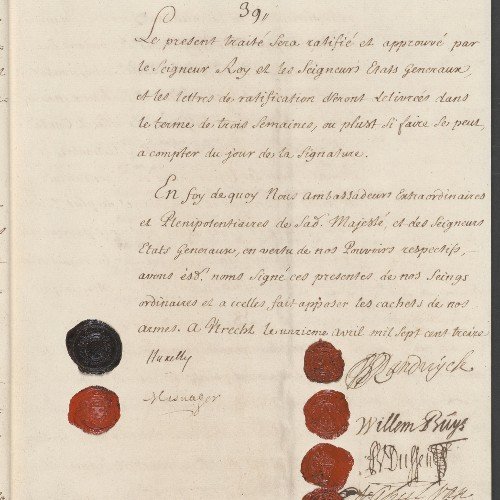 39
Le present traité sera ratifié et approuvé par
le Seigneur Roy et les Seigneurs Etats Generaux,
et les lettres de ratification seront delivrées dans
le terme de trois semaines, ou plustost si faire se peut,
a compter du jour de la signature.
En foy de quoy Nous ambassadeurs Extraordinaires
et Plenipotentiaires de Sad. Majesté, et des Seigneurs
Etats Generaux, en vertu de nos Pouvoirs respectifs,
avons esd. noms signé ces presentes de nos seings
ordinaires et a icelles fait apposer les cachets de nos
armes. A Utrecht le unzieme avril mil sept cent treize
Huxelles
Mesnager
Randwijck
Willem Buys